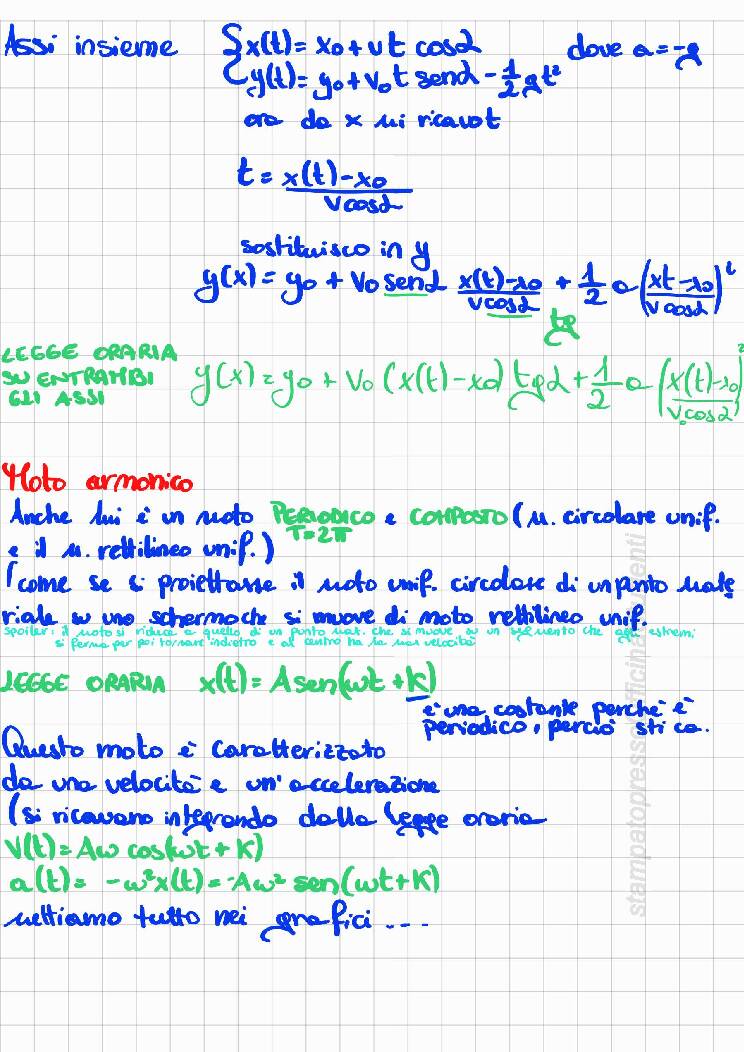 Assi insieme { x(t) = x₀ + vt cosα dove a = -g
y(t) = y₀ + v₀ t senα - 1/2 gt²
ora da x mi ricavo t
t = x(t) - x₀ / v cosα
sostituisco in y
y(x) = y₀ + v₀ senα x(t)-x₀ / v cosα + 1/2 a (xt - x₀ / v cosα)²
tg
LEGGE ORARIA
SU ENTRAMBI
GLI ASSI
y(x) = y₀ + v₀ (x(t) - x₀) tgα + 1/2 a (x(t)-x₀ / v₀ cosα)²
Moto armonico
Anche lui è un moto PERIODICO e COMPOSTO (m. circolare unif.
T=2π
e il m. rettilineo unif.)
(come se si proiettasse il moto unif. circolare di un punto mate
riale su uno schermo che si muove di moto rettilineo unif.
spoiler: il moto si riduce a quello di un punto mat. che si muove su un segmento che agli estremi
si ferma per poi tornare indietro e al centro ha la max velocità
LEGGE ORARIA x(t) = A sen(ωt + K)
è una costante perchè è
periodico, perciò sti ca.
Questo moto è caratterizzato
da una velocità e un'accelerazione
(si ricavano integrando dalla legge oraria
V(t) = Aω cos(ωt + K)
a(t) = -ω²x(t) = -Aω² sen(ωt + K)
mettiamo tutto nei grafici ....